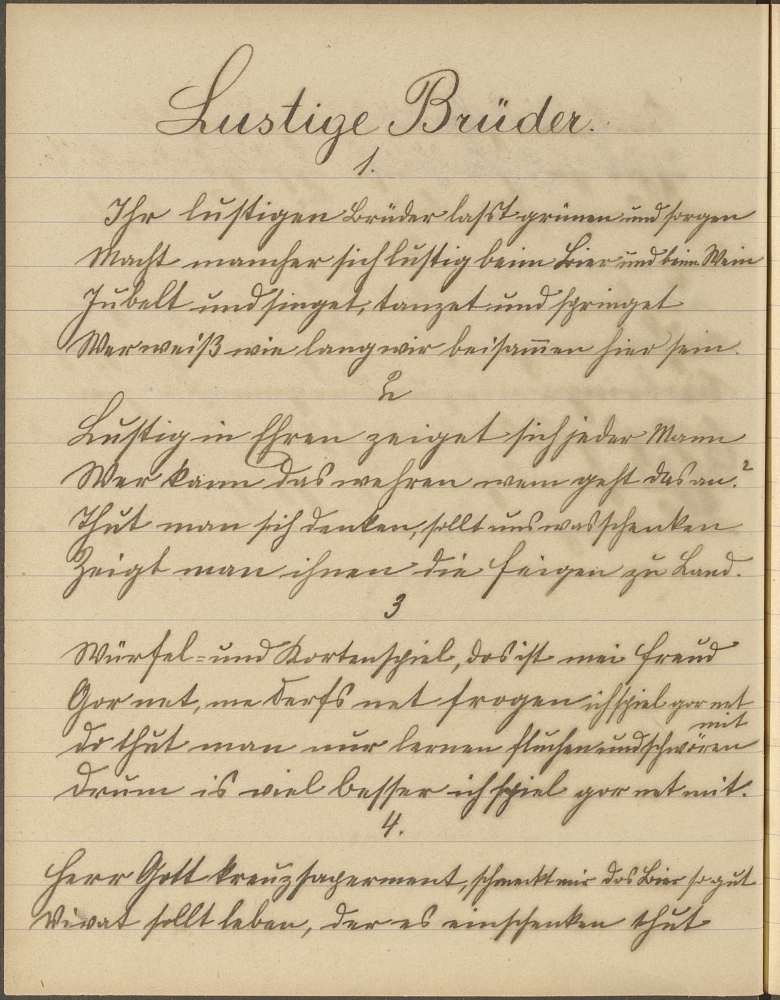 Lustige Brüder.
1.
Ihr lustigen Brüder lasst grünen und sorgen
Macht mancher sich lustig beim Bier und beim Wein
Jubelt und singet, tanzet und springet
Wer weiß wie lang wir beisam̄en hier sein.
2
Lustig in Ehren zeiget sich jeder Mann
Wer kann das wehren wem geht das an?
Thut man sich denken, sollt uns was schenken
Zeigt man ihnen die Feigen zu Land.
3
Würfel- und Kortenspiel, dos ist mei Freud
Gor net, me derfs net frogen ich spiel gor net
mit
do thut man nur lernen fluchen und schwören
drum is viel besser ich spiel gor net mit.
4.
Herr Gott kreuzsaperment, schmeckt mir das Bier so gut
Vivat sollt leben, der es einschenken thut